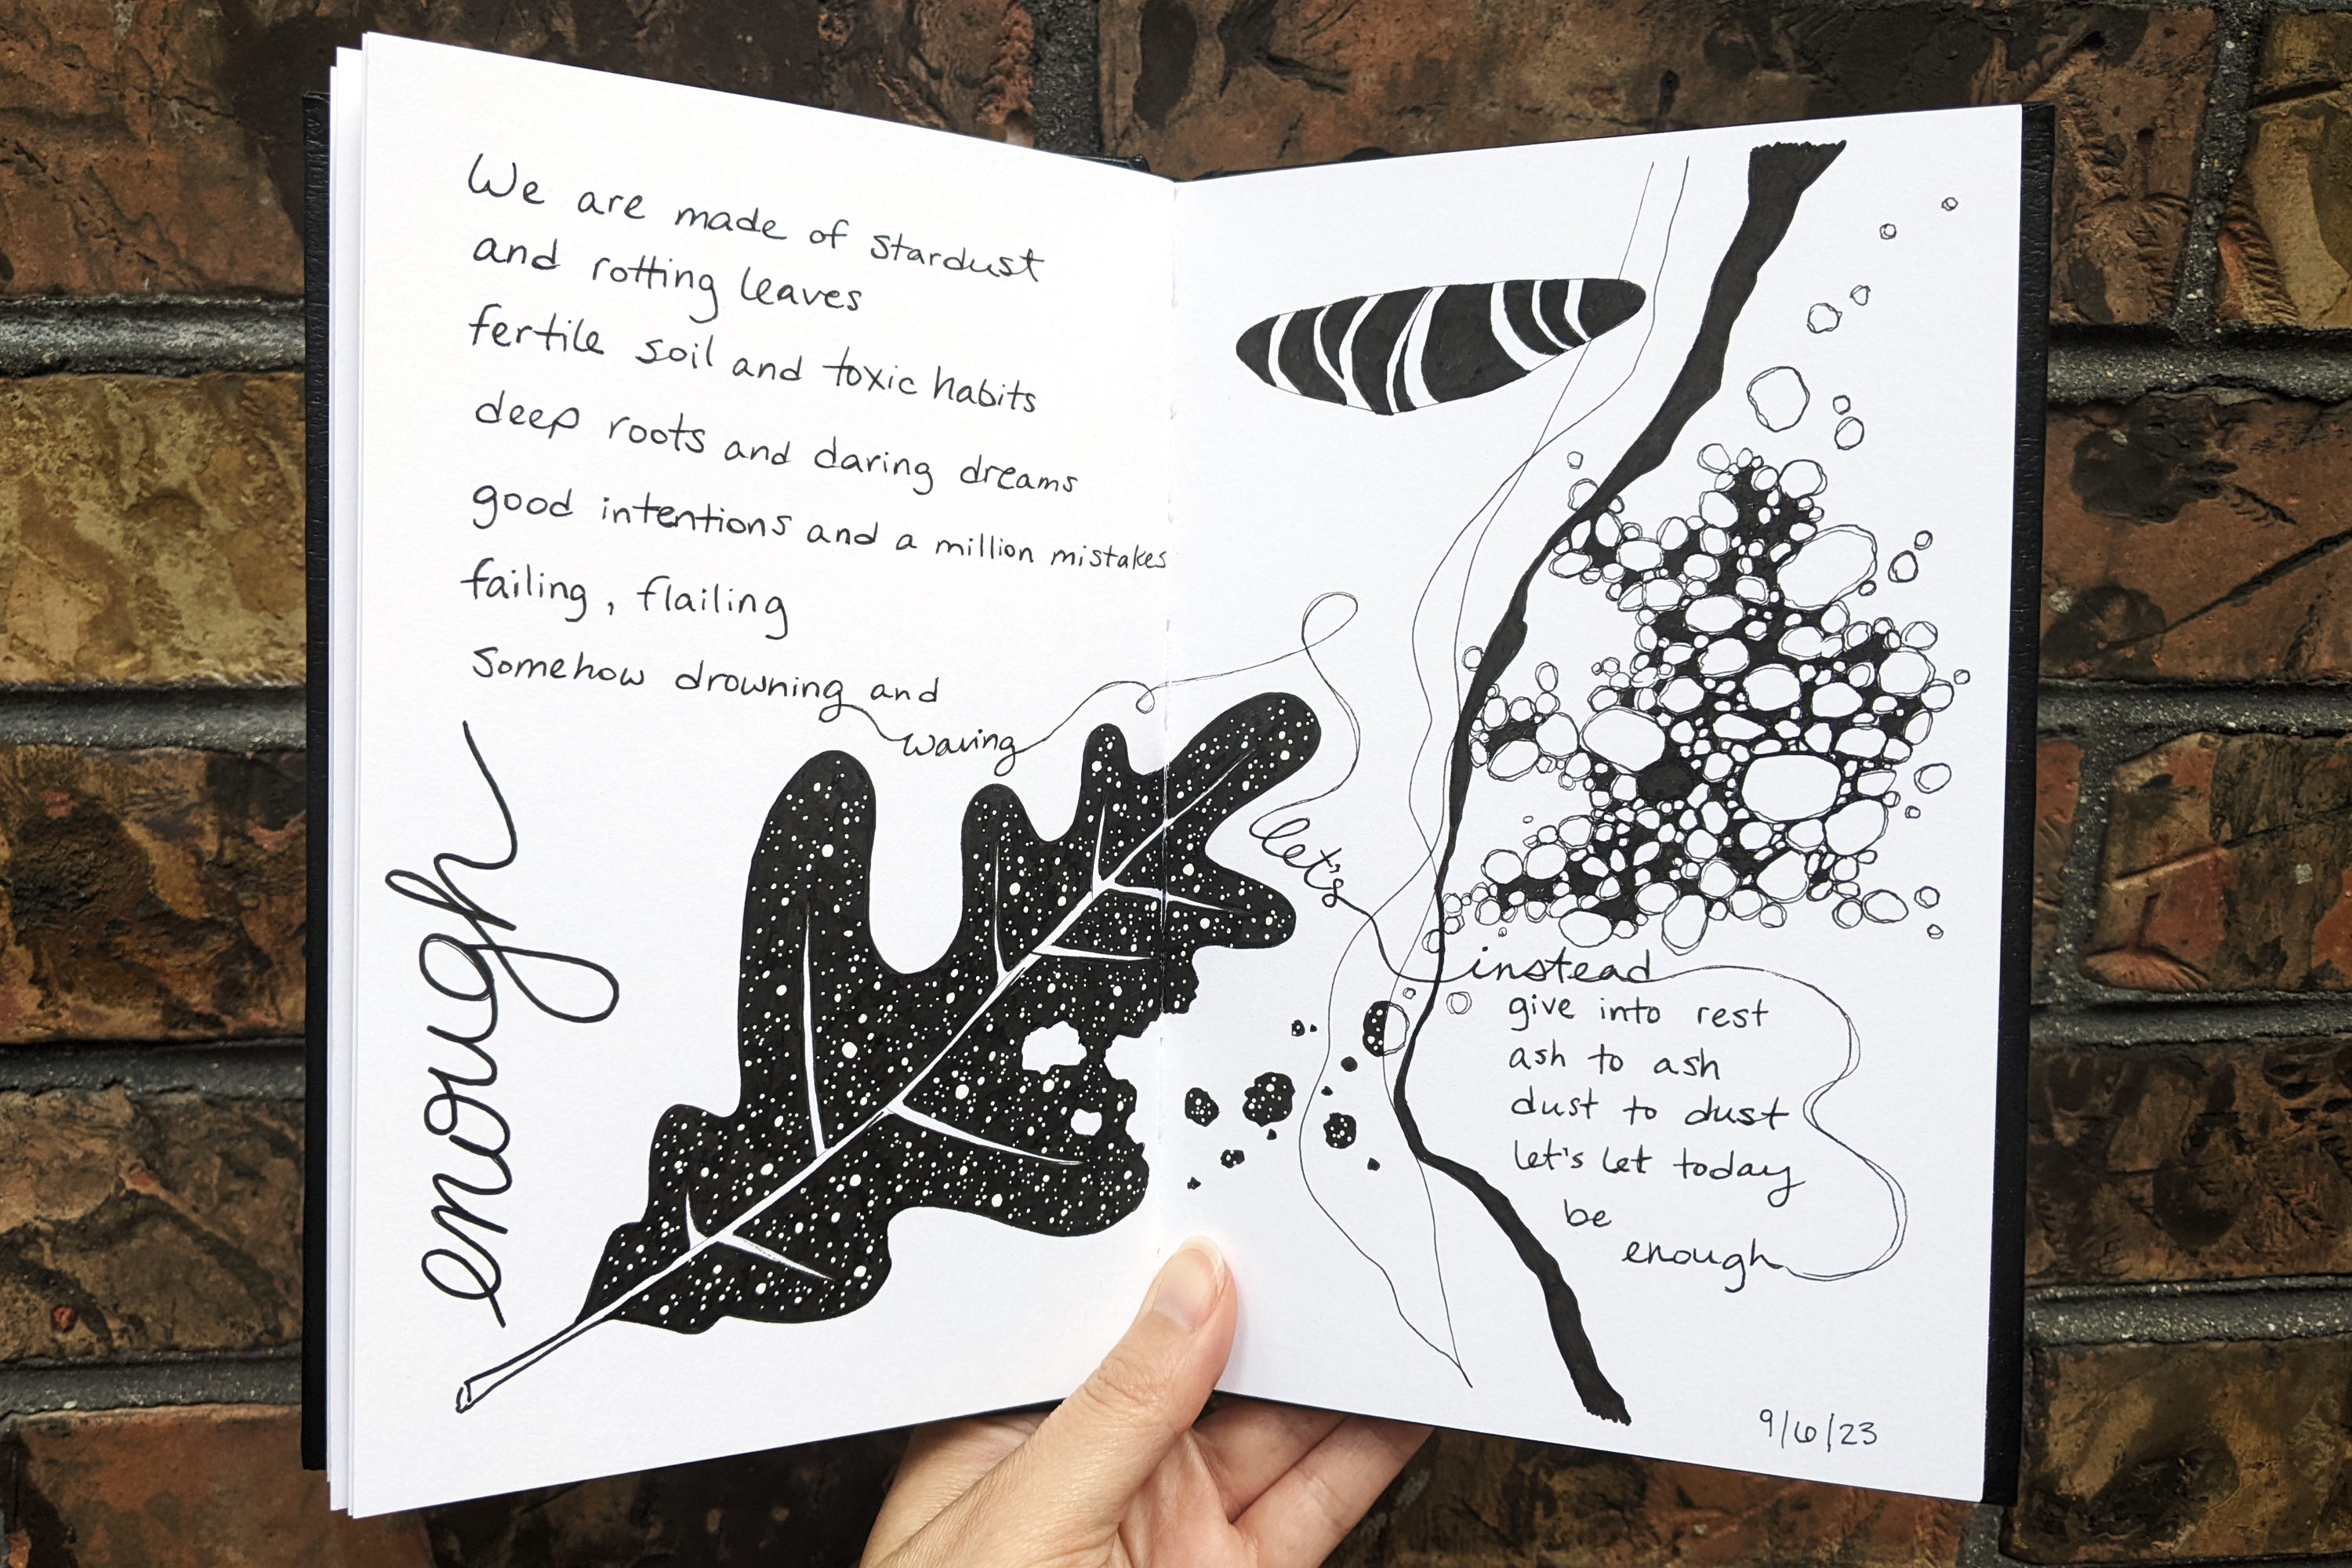 We are made of stardust
and rotting leaves
fertile soil and toxic habits
deep roots and daring dreams
good intentions and a million mistakes
failing, flailing
somehow drowning and
waving
enough
let's
instead
give into rest
ash to ash
dust to dust
let's let today
be
enough
9/6/23